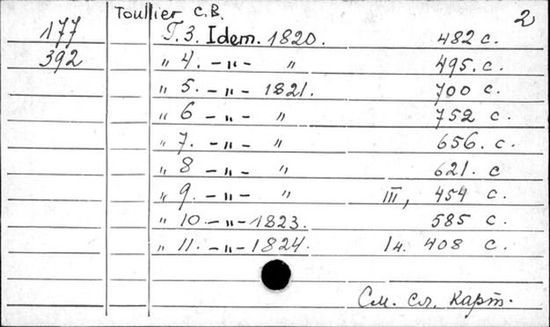 Toullier C.B. 2
177 Т. 3. Idem. 1820. 482 с.
392 " 4. - " - " 495. с.
" 5. - " - 1821. 700 с.
" 6 - " - " 752 с.
" 7. - " - " 656. с.
" 8 - " - " 621. с
" 9. - " - " III, 454 с.
" 10. - " - 1823. 585 с.
" 11. - " - 1824. 1 л. 408 с.
См. сл. карт.